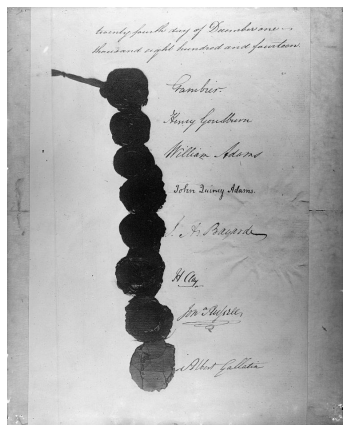 twenty fourth day of December one
thousand eight hundred and fourteen
Gambier.
Henry Goulburn
William Adams
John Quincy Adams.
J. A. Bayard
H. Clay
Jon.a Russell
Albert Gallatin